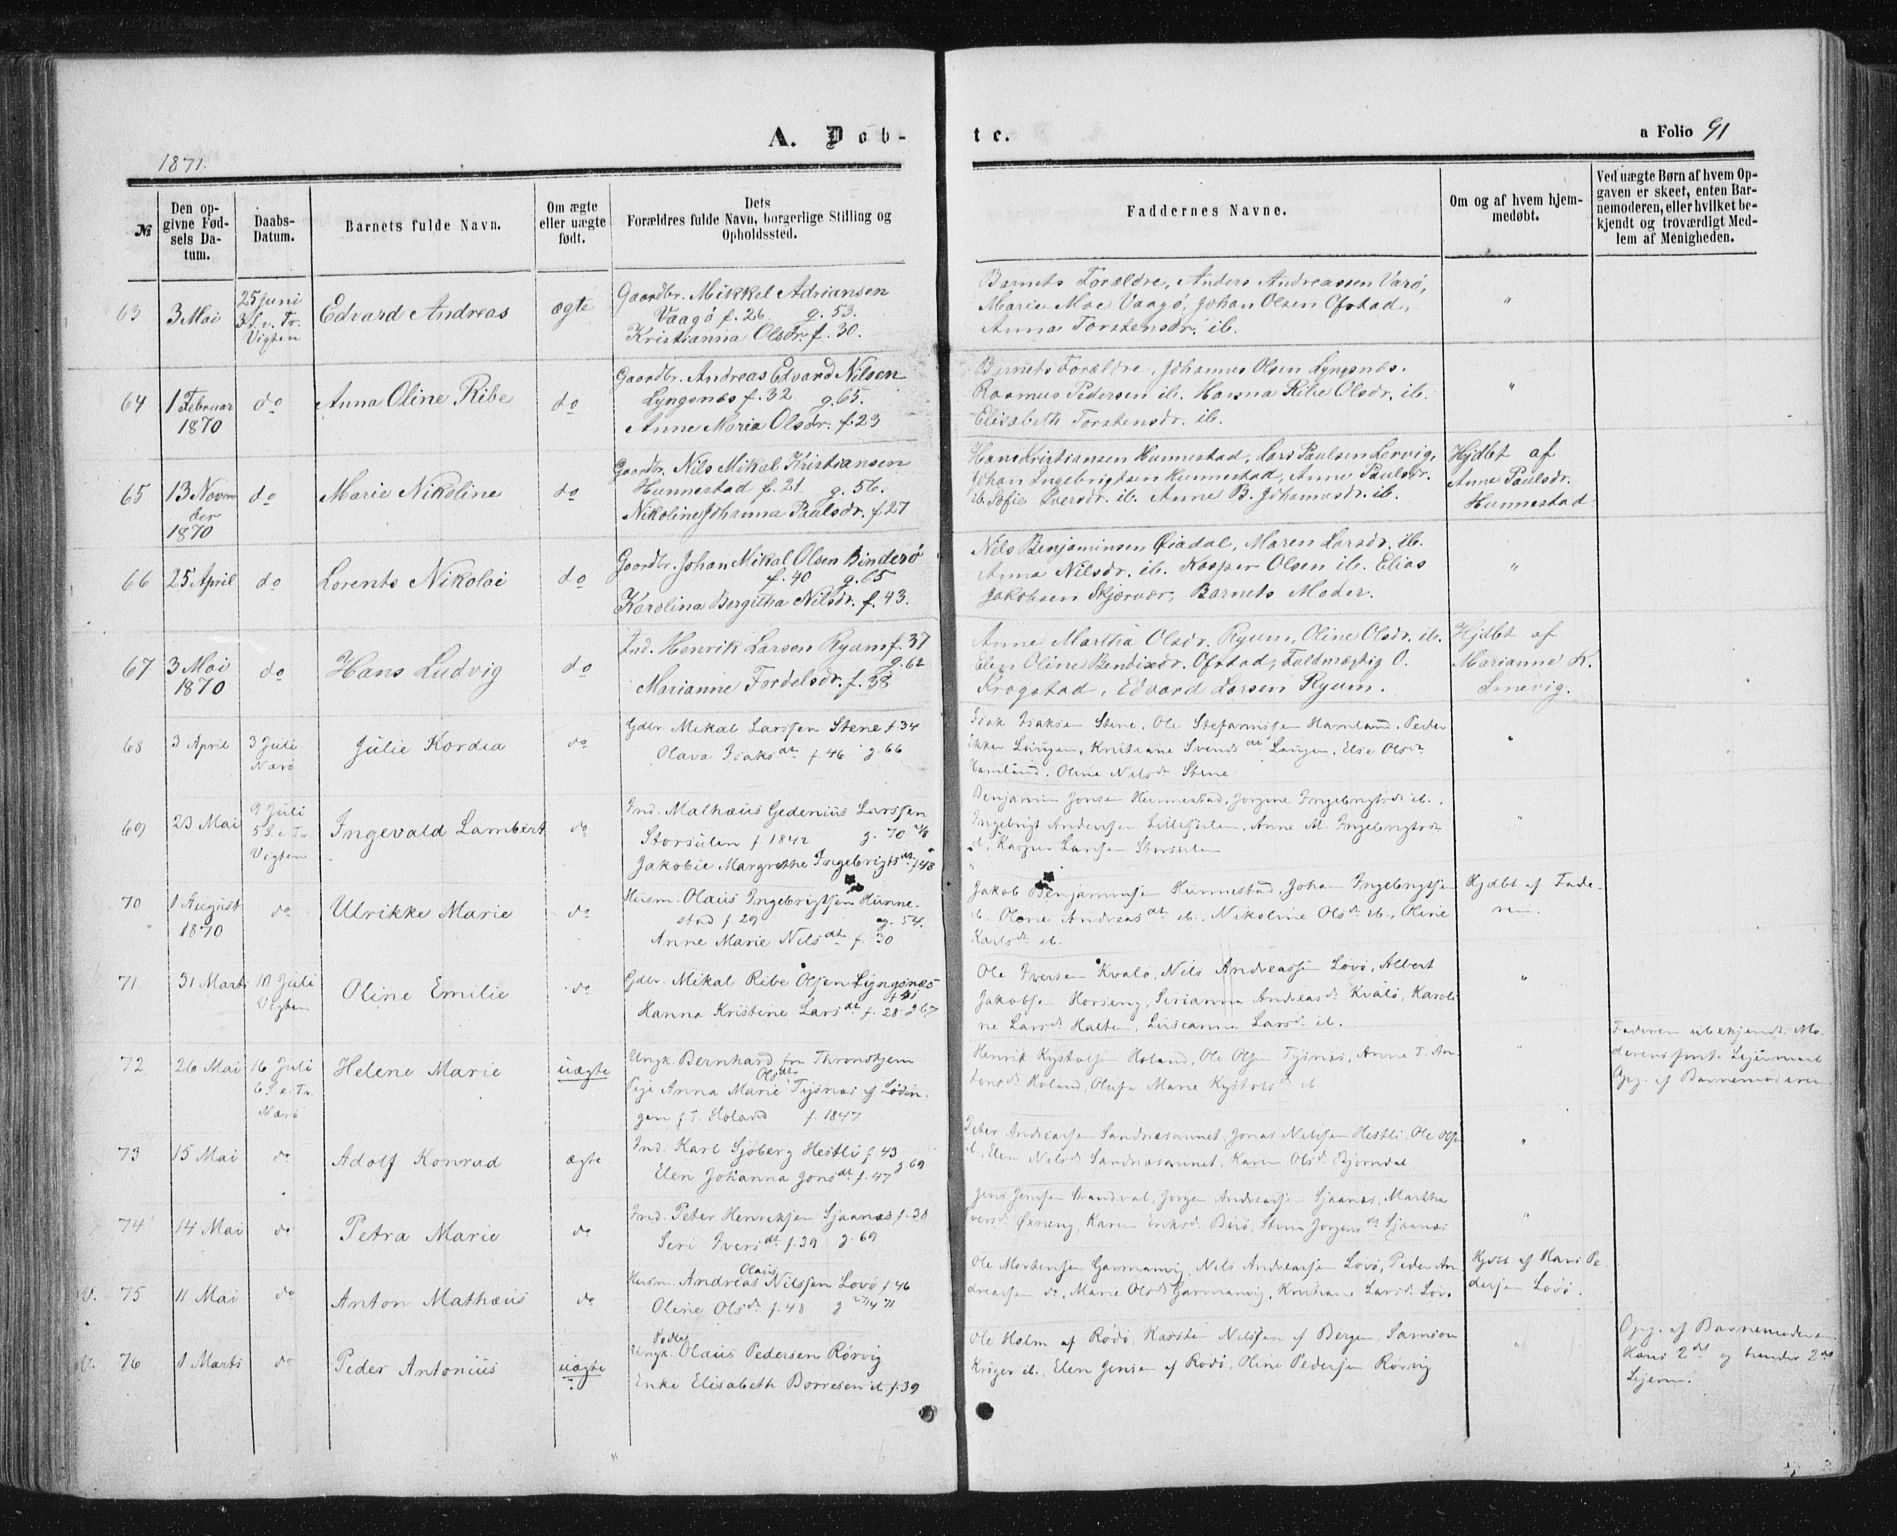 A. Døb-
te.
a Folio 91
1871.
№
Den op-
givne Fød-
sels Da-
tum.
Daabs-
Datum.
Barnets fulde Navn.
Om ægte
eller uægte
født.
Dets
Forældres fulde Navn, borgerlige Stilling og
Opholdssted.
Faddernes Navne.
Om og af hvem hjem-
medøbt.
Ved uægte Børn af hvem Op-
gaven er skeet, enten Bar-
nemoderen, eller hvilket be-
kjendt og troværdigt Med-
lem af Menigheden.
63
3 Mai
25 juni
3 S. e. Tr.
Vigten
Edvard Andreas
ægte
Gaardbr. Mikkel Adriansen
Vaagø f. 26 g. 53.
Kristianna Olsdr. f. 30.
Barnets Forældre, Anders Andreassen Varø,
Marie Moe Vaagø, Johan Olsen Ofstad,
Anna Torstensdr. ib.
"
64
1 Februar
1870
do
Anna Oline Ribe
do
Gaardbr. Andreas Edvard Nilsen
Lyngsnæs f. 32 g. 65.
Anne Maria Olsdr. f. 23
Barnets Forældre, Johannes Olsen Lyngsnæs.
Rasmus Pedersen ib. Hanna Ribe Olsdr. ib.
Elisabeth Torstensdr. ib.
"
65
13 Novem
ber
1870
do
Marie Nikoline
do
Gaardbr. Nils Mikal Kristiansen
Hunnestad f. 21 g. 56.
Nikoline Johanna Paulsdr. f. 27
Hans Kristiansen Hunnestad, Lars Paulsen Lervig,
Johan Ingebrigtsen Hunnestad, Anne Paulsdr.
ib. Sofie Iversdr. ib. Anne B. Johannesdr. ib.
Hjdbt af
Anne Paulsdr.
Hunnestad
66
25 April
do
Lorents Nikolai
do
Gaardbr. Johan Mikal Olsen Binderø
f. 40 g. 65
Karolina Bergitha Nilsdr. f. 43.
Nils Benjaminsen Øiadal, Maren Larsdr. ib.
Anna Nilsdr. ib. Kasper Olsen ib. Elias
Jakobsen Skjærvær, Barnets Moder.
"
67
3 Mai
1870
do
Hans Ludvig
do
Ind. Henrik Larsen Ryum f. 37
g. 62
Marianne Fordelsdr. f. 38
Anne Martha Olsdr. Ryum, Oline Olsdr. ib.
Elen Oline Bendixdr. Ofstad, Fuldmægtig O.
Krogstad, Edvard Larsen Ryum.
Hjdbt af
Marianne K.
Smevig.
68
3 April
3 Juli
Nærø
Julie Kordia
do
Gdbr. Mikal Larssen Stene f. 34
Olava Isaksdt f. 46 g. 66
Isak Isaksen Stene, Ole Stefanussen Hamland, Peder
Laugen, Kristiane Svendsdt Laugen, Else Olsdt
Hamland. Oline Nilsdt Stene
"
69
23 Mai
9 Juli
5 S. e. Tr.
Vigten
Ingevald Lambert
do
Ind. Mathæus Gedenius Larssen
Storsulen f. 1842 g. 70
Jakobie Margrethe Ingebrigtsdt f. 48
Benjamin Jonsen Hunnestad, Jørgine Ingebrigtsdt ib.
Ingebrigt Andersen Lillesulen, Anne M. Ingebrigtsdt
ib, Kasper Larssen Storsulen
"
70
1 August
1870
do
Ulrikke Marie
do
Husm. Olaus Ingebrigtsen Hunne-
stad f 29 g. 54.
Anne Marie Nilsdt f. 30
Jakob Benjaminsen Hunnestad, Johan Ingebrigtsen
ib. Oline Andreasdt ib. Nikoline Olsdt ib, Oline
Karlsdt ib.
Hjdbt af Fade-
ren.
71
31 Marts
10 Juli
Vigten
Oline Emilie
do
Gdbr. Mikal Ribe Olsen Lyngsnæs
f. 41
Hanna Kristine Larsdt f. 28 g. 67
Ole Iversen Kvalø, Nils Andreassen Lovø, Albert
Jakobsen Horseng, Serianna Andreasdt Kvalø, Karoli-
ne Larsdt Halten, Luiseanna Larsdt ib.
"
72
26 Mai
16 Juli
6 S. e. Tr.
Nærø
Helene Marie
uægte
Ungk. Bernhard fra Throndhjem
Pige Anna Marie Olsdt Tysnæs af Lødin-
gen f. T. Holand f. 1847
Henrik Kystolsen Holand, Ole Olsen Tysnæs, Anne T. An-
tonsdt Holand, Olufa Marie Kystolsdt ib
"
Faderen ubekjendt. Mo-
derens første Leiermaal
Opg. af Barnemoderen
73
15 Mai
do
Adolf Konrad
ægte
Ind. Karl Sjøberg Hestli f. 43
g. 69
Elen Johanna Jonsdt f. 47
Peter Andreassen Sandnæsaunet, Jonas Nilssen Hestli, Ole Olsen
ib, Elen Nilsdt Sandnæsaunet, Karen Olsdt Bjørndal
"
74
14 Mai
do
Petra Marie
do
Ind. Peter Henriksen Sjaanæs f. 38
Seri Iversdt f. 39 g. 69
Jens Jenssen Strandval, Jørgen Andreassen Sjaanæs, Martha
Iversdt Øxneng, Karen Eriksdt Biiø, Stina Jørgensdt Sjaanæs
"
75
11 Mai
do
Anton Mathæus
do
Husm. Andreas Olaus Nilssen Lovø f. 46
Oline Olsdt f. 48 g 27/4 71
Ole Mortensen Garmanvig, Nils Andreassen Lovø, Peder An-
dreassen ib, Marie Olsdt Garmanvig, Kristiane Larsdt Lovø
Hjdbt af Hans Pe-
dersen Lovø.
76
1 Marts
do
Peder Antonius
uægte
Ungk. Olaus Pedersen Rørvig
Enke Elisabeth Borresen ib f. 39
Ole Holm af Rødø, Karsten Nilssen af Bergen, Samson
Krøger ib., Elen Jensen af Rødø, Oline Pedersen Rørvig
"
Opg. af Barnemoderen
Hans 2det og hendes 2det
Leierm.